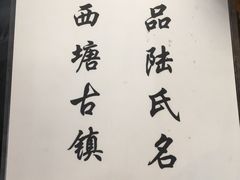 品陆氏名
西塘古镇